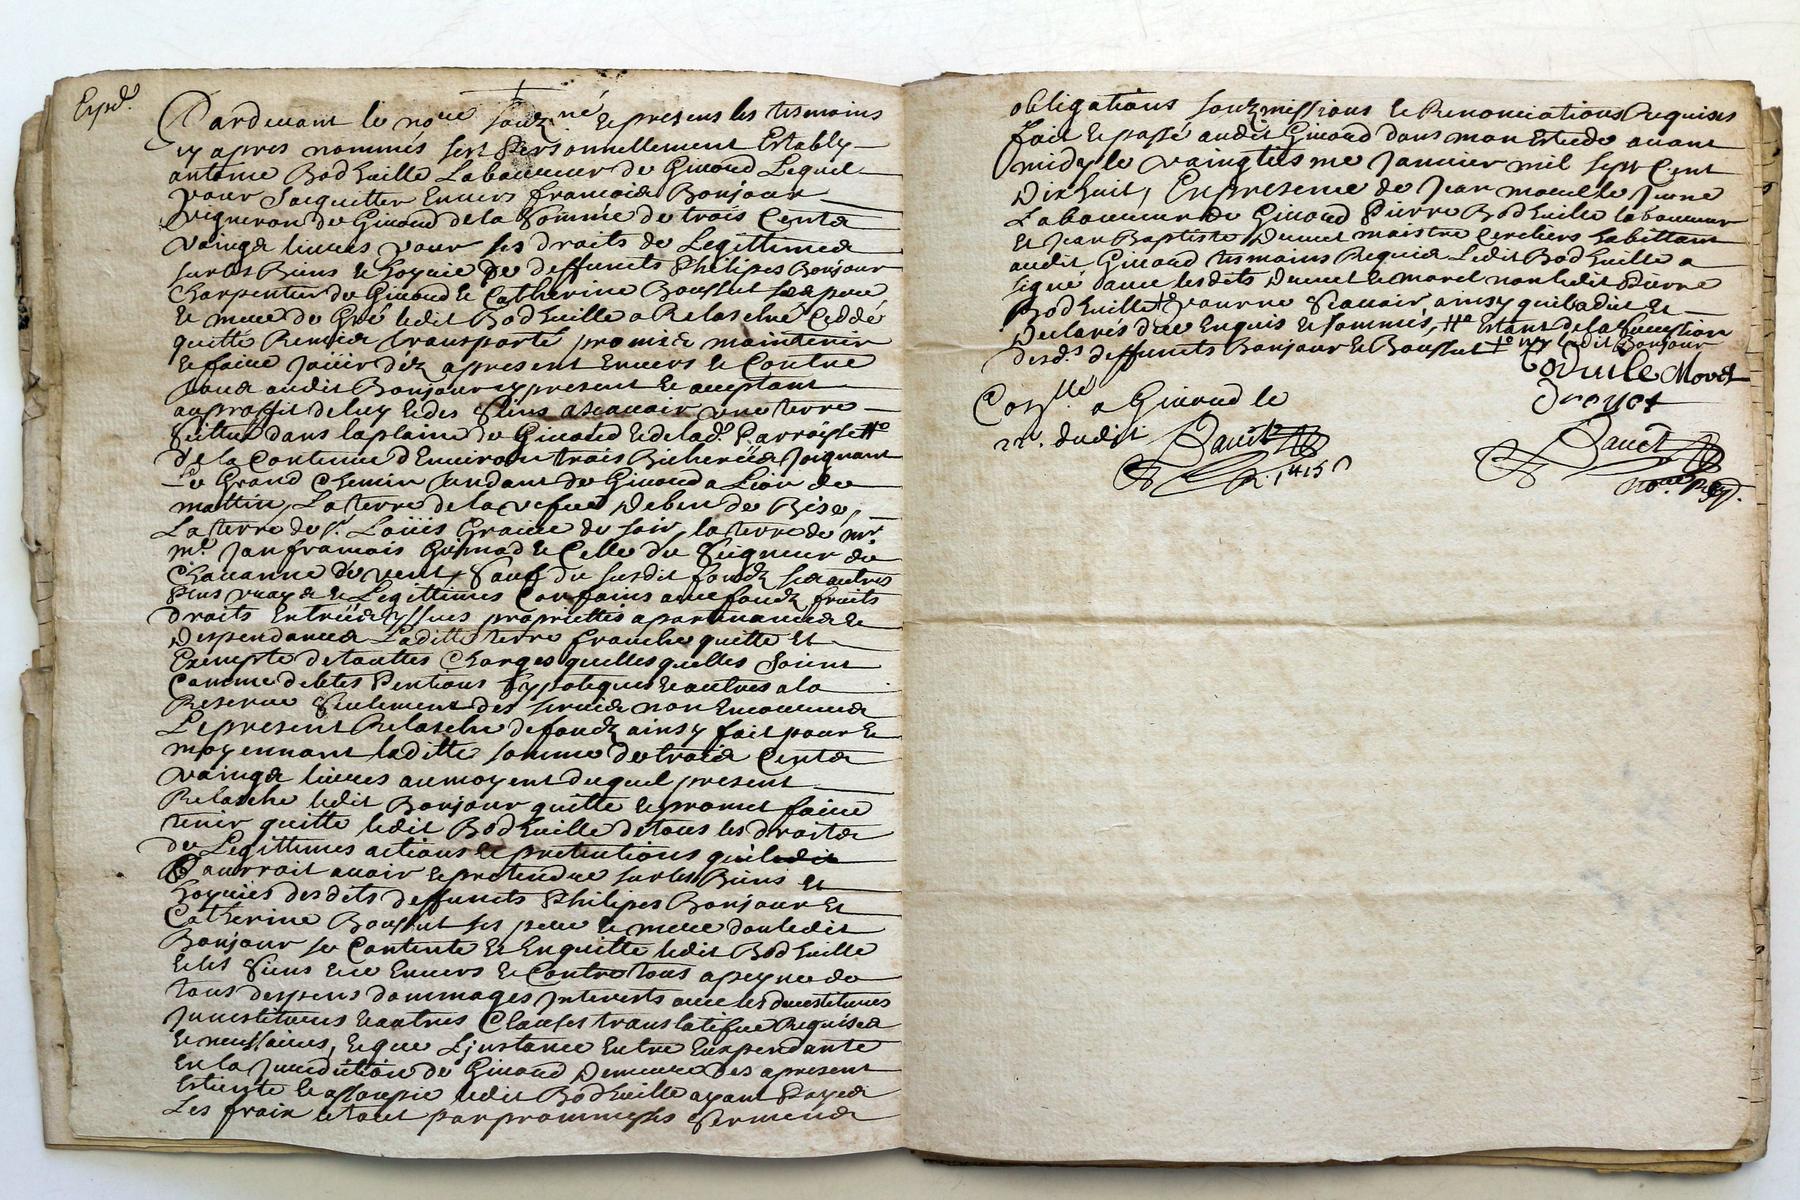 Expd.
Pardevant le nore souzné, & presens les tesmoins
cy apres nommés sest Personnellement Estably
antoine Bodhuille Laboureur de Giuord Lequel
pour Sacquitter Enuers francois Bonjour
vigneron de Giuord de la Somme de trois Cents
vaingt liures pour ses droits de Legittimes
sur les Biens & hoyrie de deffuncts Philipes Bonjour
Charpentier de Giuord & Catherine Bouffut ses pere
& mere de Gré ledit Bodhuille a Relasché Ceddé
quitté Remis transporté promis maintenir
& faire Joüir déz apresent Enuers & Contre
tous audit Bonjour cy present & acceptant
au proffit de luy & des Siens ascauoir une terre
Scittue dans la plaine de Giuord & de lad. Parroisse
de la Contenue d'Enuiron trois Bicherées Joignant
Le Grand Chemin tendant de Giuord a Lion de
mattin, La terre de la vefue de bise,
La terre de Sr. Loüis de soir, la terre de mr.
me. Jan francois & Celle du Seigneur de
Chauanne de vent, Sauf du susdit fondz ses autres
Plus vrays & Legittimes Confains auec fondz fruits
droits Entrées yssues proprietés apartenances &
Despendances Laditte terre franche quitte Et
Exempte de touttes Charges quelles quelles Soient
Comme debtes Pentions hypoteques & autres a la
Reserue Seulement des seruis non Encourus
Le present Relasche de fondz ainsy fait pour &
moyennant laditte somme de trois Cents
vaingt liures au moyent duquel present
Relasche ledit Bonjour quitte & promet faire
tenir quitte ledit Bodhuille de tous les droits
de Legittimes actions & pretentions quil
Pourroit auoir & pretendre sur les Biens Et
hoyries desdits deffuncts Philipes Bonjour Et
Catherine Bouffut ses pere & mere dont ledit
Bonjour se Contente & Enquitte ledit Bodhuille
& les Siens & ce Enuers & Contre tous a peyne de
tous despens dommages Interests auec les deuestitures
Inuestitures & autres Clauses translatifue Requises
& necessaires, & que Ljnstance Entre Eux pendante
En la Jurediction de Giuord Demeure des apresent
Esteinte & assoupie ledit Bodhuille ayant Payés
Les fraix & tout par prommesses Serments
obligations souzmissions & Renonciations Requises
fait & passé audit Giuord dans mon Estude auant
midy le vaingtiesme Januier mil sept Cent
Dixhuit, En presence de Jean Jeune
Laboureur de Giuord Pierre Bodhuille laboureur
Et Jean Baptiste maistre habittant
audit Giuord tesmoins Requis Ledit Bodhuille a
signé auec lesdits & morel non ledit Pierre
Bodhuille pour ne Scauoir ainsy quil a dit &
Declarés de ce Enquis & sommés, Estant de la succession
desd.s deffuncts Bonjour & Bouffut ny ledit Bonjour
Coduile Morel
Collé a Giuord le